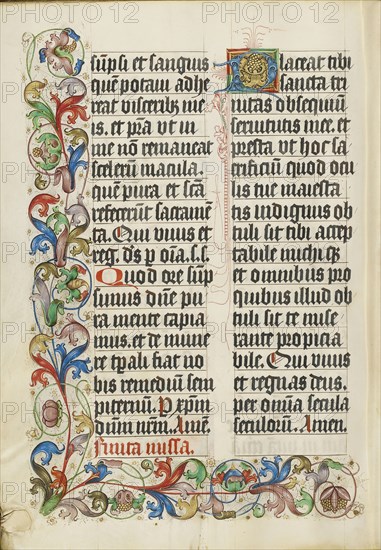 sumpsi et sanguis
que potaui adhe
reat visceribus me
is. et pra vt in
me non remaneat
scelerum macula.
quem pura et scta
refecerunt sacramen
ta. Qui viuis et
reg. ds p oia. s. s.
Quod ore sump
simus dne pu
ra mente capia
mus. et de mune
re tpali fiat no
bis remedium sem
piternum. P epm
dum nrm. Ame.
finita missa.
Placeat tibi
sancta tri
nitas obsequium
seruitutis mee. et
presta vt hoc sa
crificium quod ocu
lis tue maiesta
tis indignus ob
tuli sit tibi accep
tabile michi qz
et omnibus pro
quibus illud ob
tuli sit te mise
rante propicia
bile. Qui viuis
et regnas deus.
per omnia secula
seculorum. Amen.